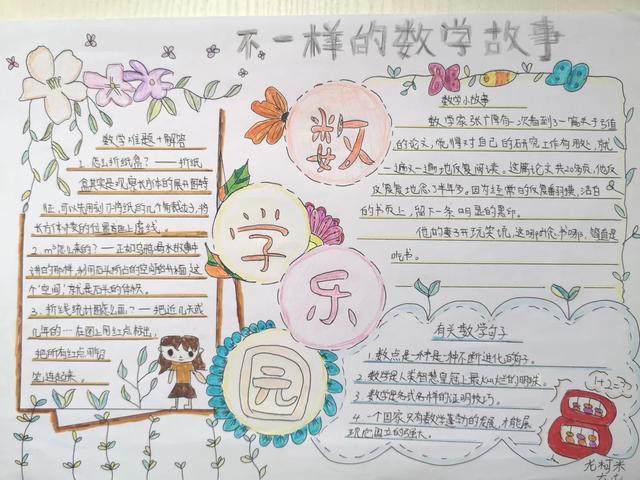 不一样的数学故事
数学乐园
数学难题+解答
1.怎么折纸盒?——折纸
盒其实是观察长方体的展开图特
征,可以先用剪刀将纸的几个角剪去了,将
长方体对案的位置画上虚线。
2.m³怎么来的?——正如乌鸦喝水故事中
讲的那样,利用石头所占的空间
个空间!就是石头的体积。
3.折线统计图怎么画?——把近几天或
几年的…在图上用红点标出,
把所有红点都给
连起来。
数学小故事
数学家张广厚有一次看到了一篇关于亏值
的论文,觉得对自己的研究工作有用处,就
一遍又一遍地反复阅读。这篇论文共20多页,他反
反复复地念了半年多。因为经常的反复翻摸,洁白
的书页上,留下一条明显的黑印。
他的妻子开玩笑说,这哪叫念书哪,简直是
吃书。
有关数学句子
1.数点是一种不断进化的
2.数学是人类智慧皇冠上最灿烂的明珠。
3.数学是各式各样的证明技巧。
4.一个国家只有数学蓬勃的发展,才能展
现它国立的强大。
1+2=?
尤柯米